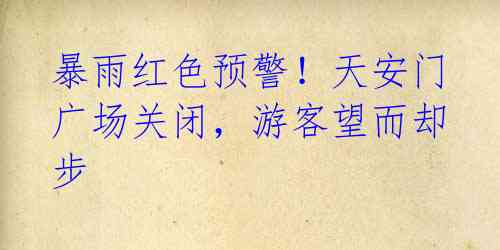 暴雨红色预警！天安门
广场关闭，游客望而却
步